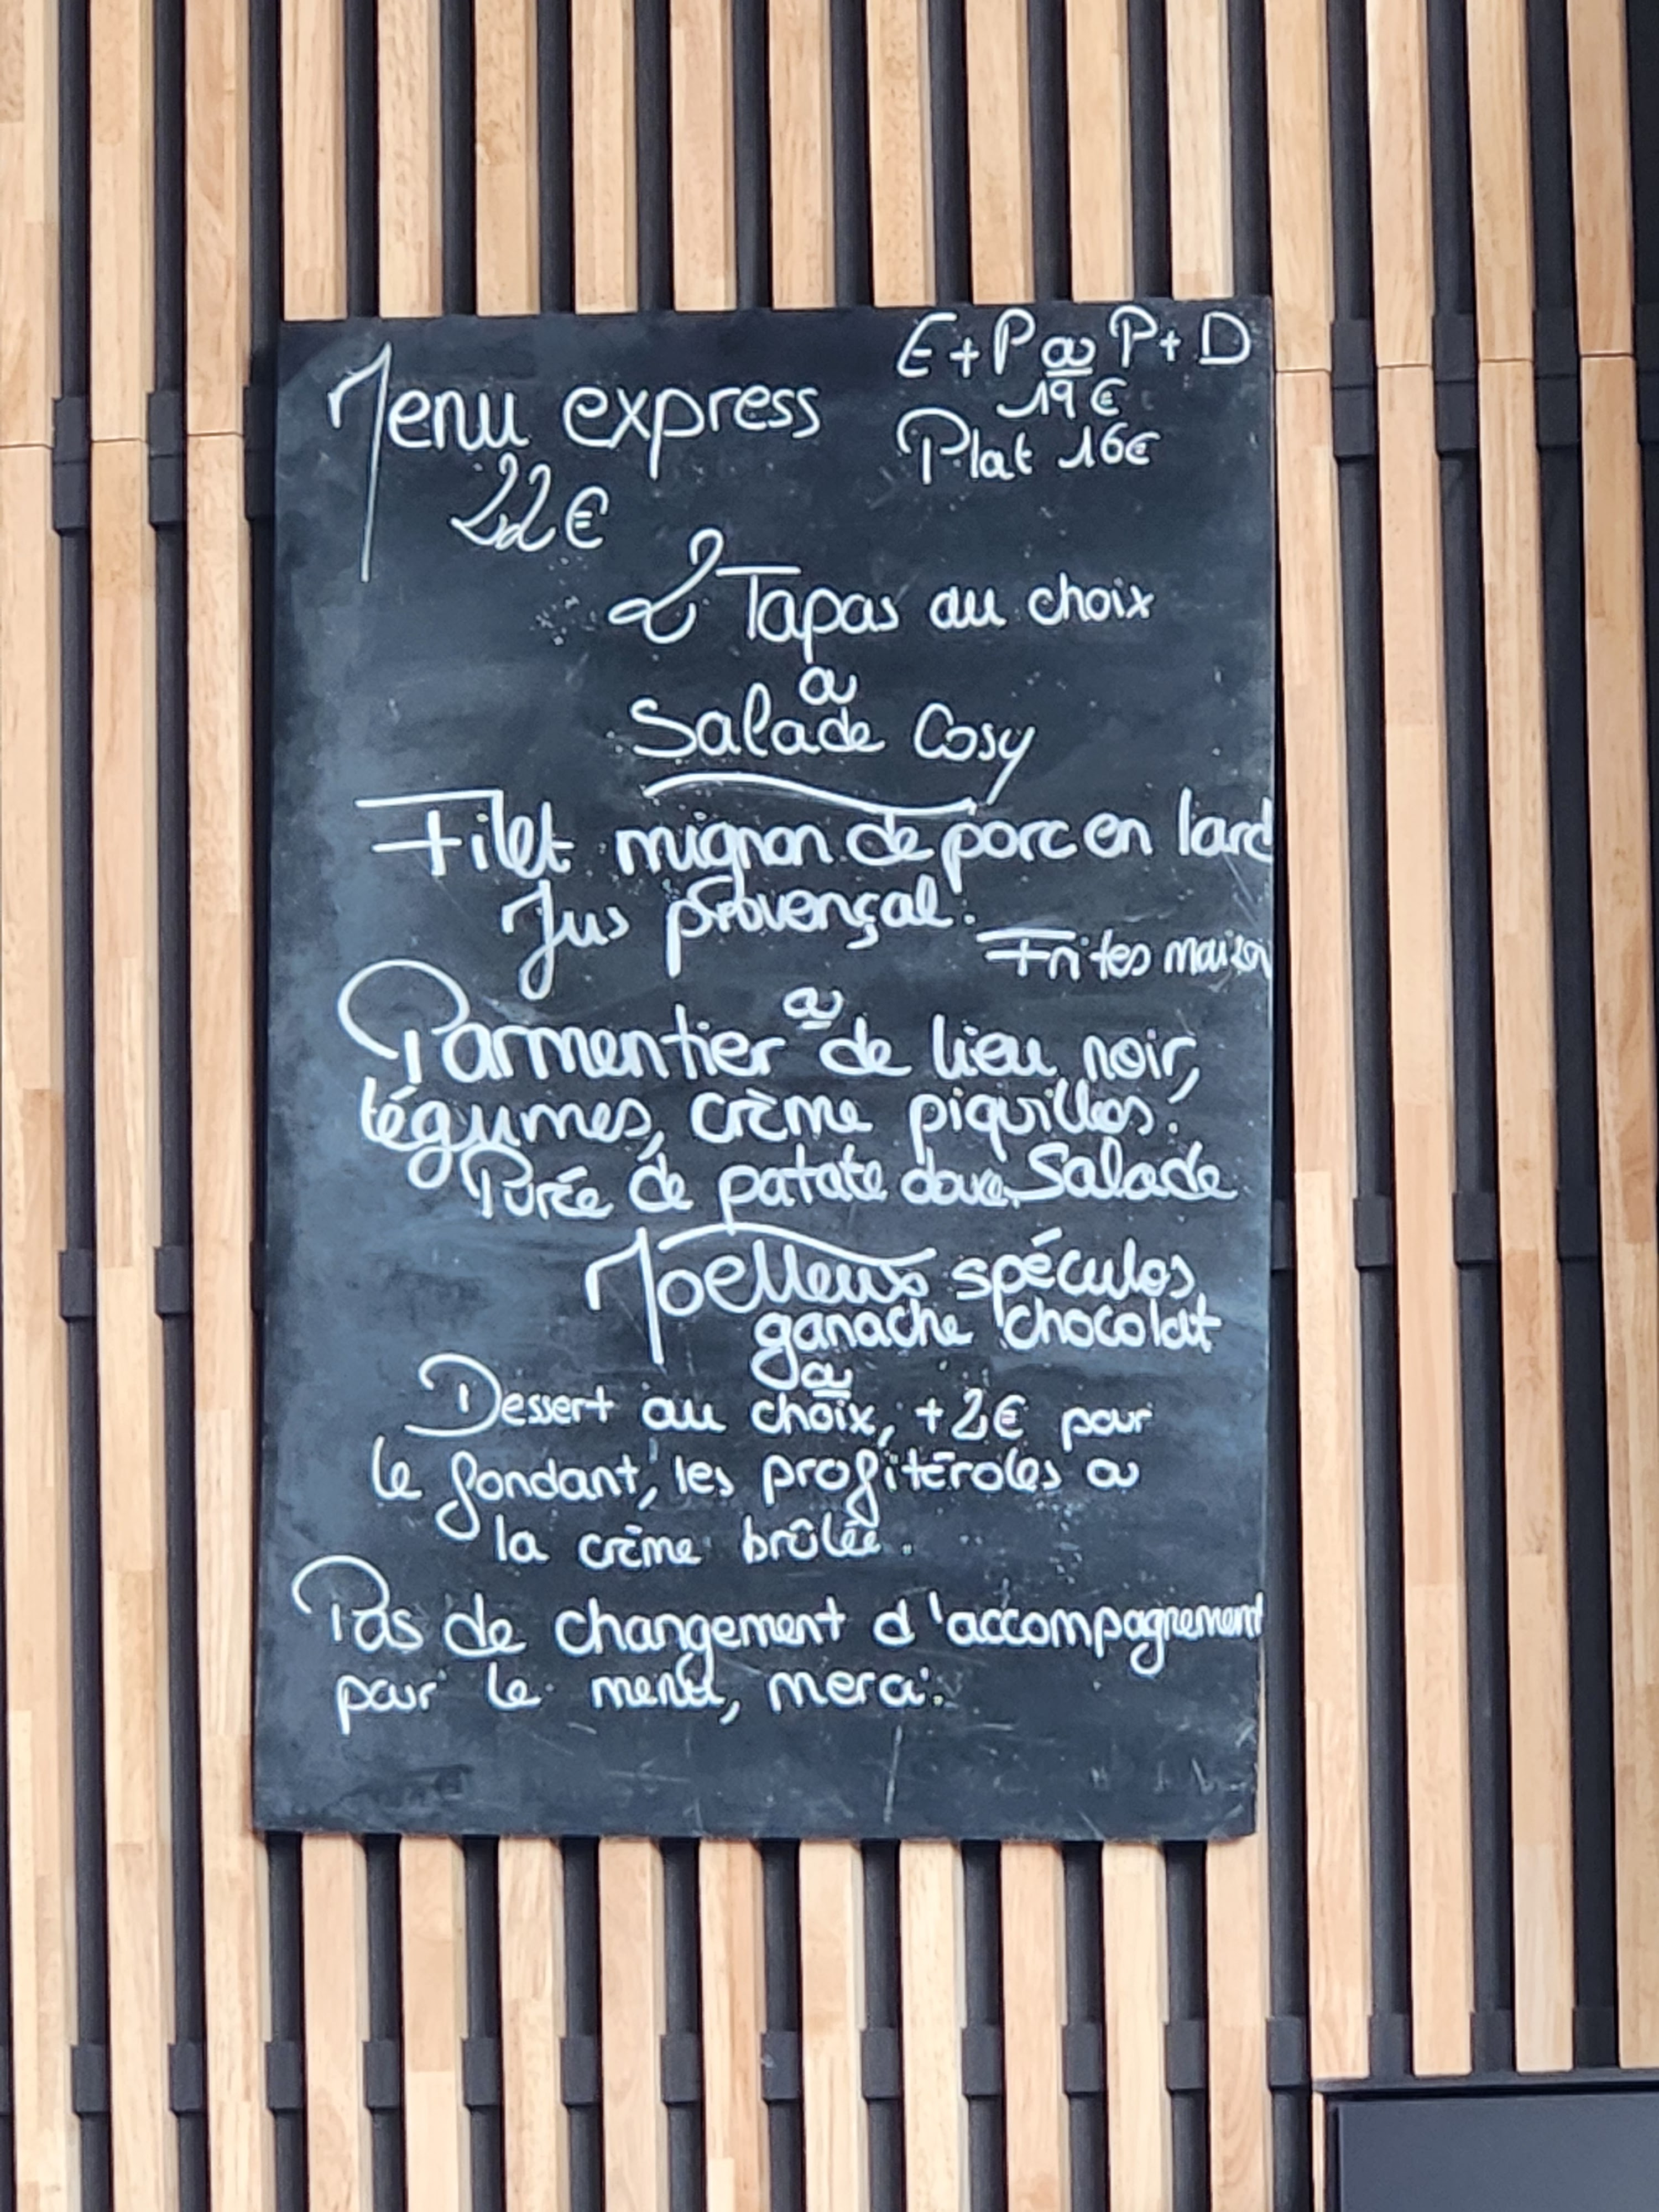 Menu express
22€
E+P ou P+D
19€
Plat 16€
2 Tapas au choix
ou
Salade Cosy
Filet mignon de porc en lard
Jus provençal.
Frites maison
ou
Parmentier de lieu noir,
légumes, crème piquillos.
Purée de patate douce, Salade
Moelleux spéculos
ganache chocolat
ou
Dessert au choix, +2€ pour
le fondant, les profiteroles ou
la crème brûlée.
Pas de changement d'accompagnement
pour le menu, merci.